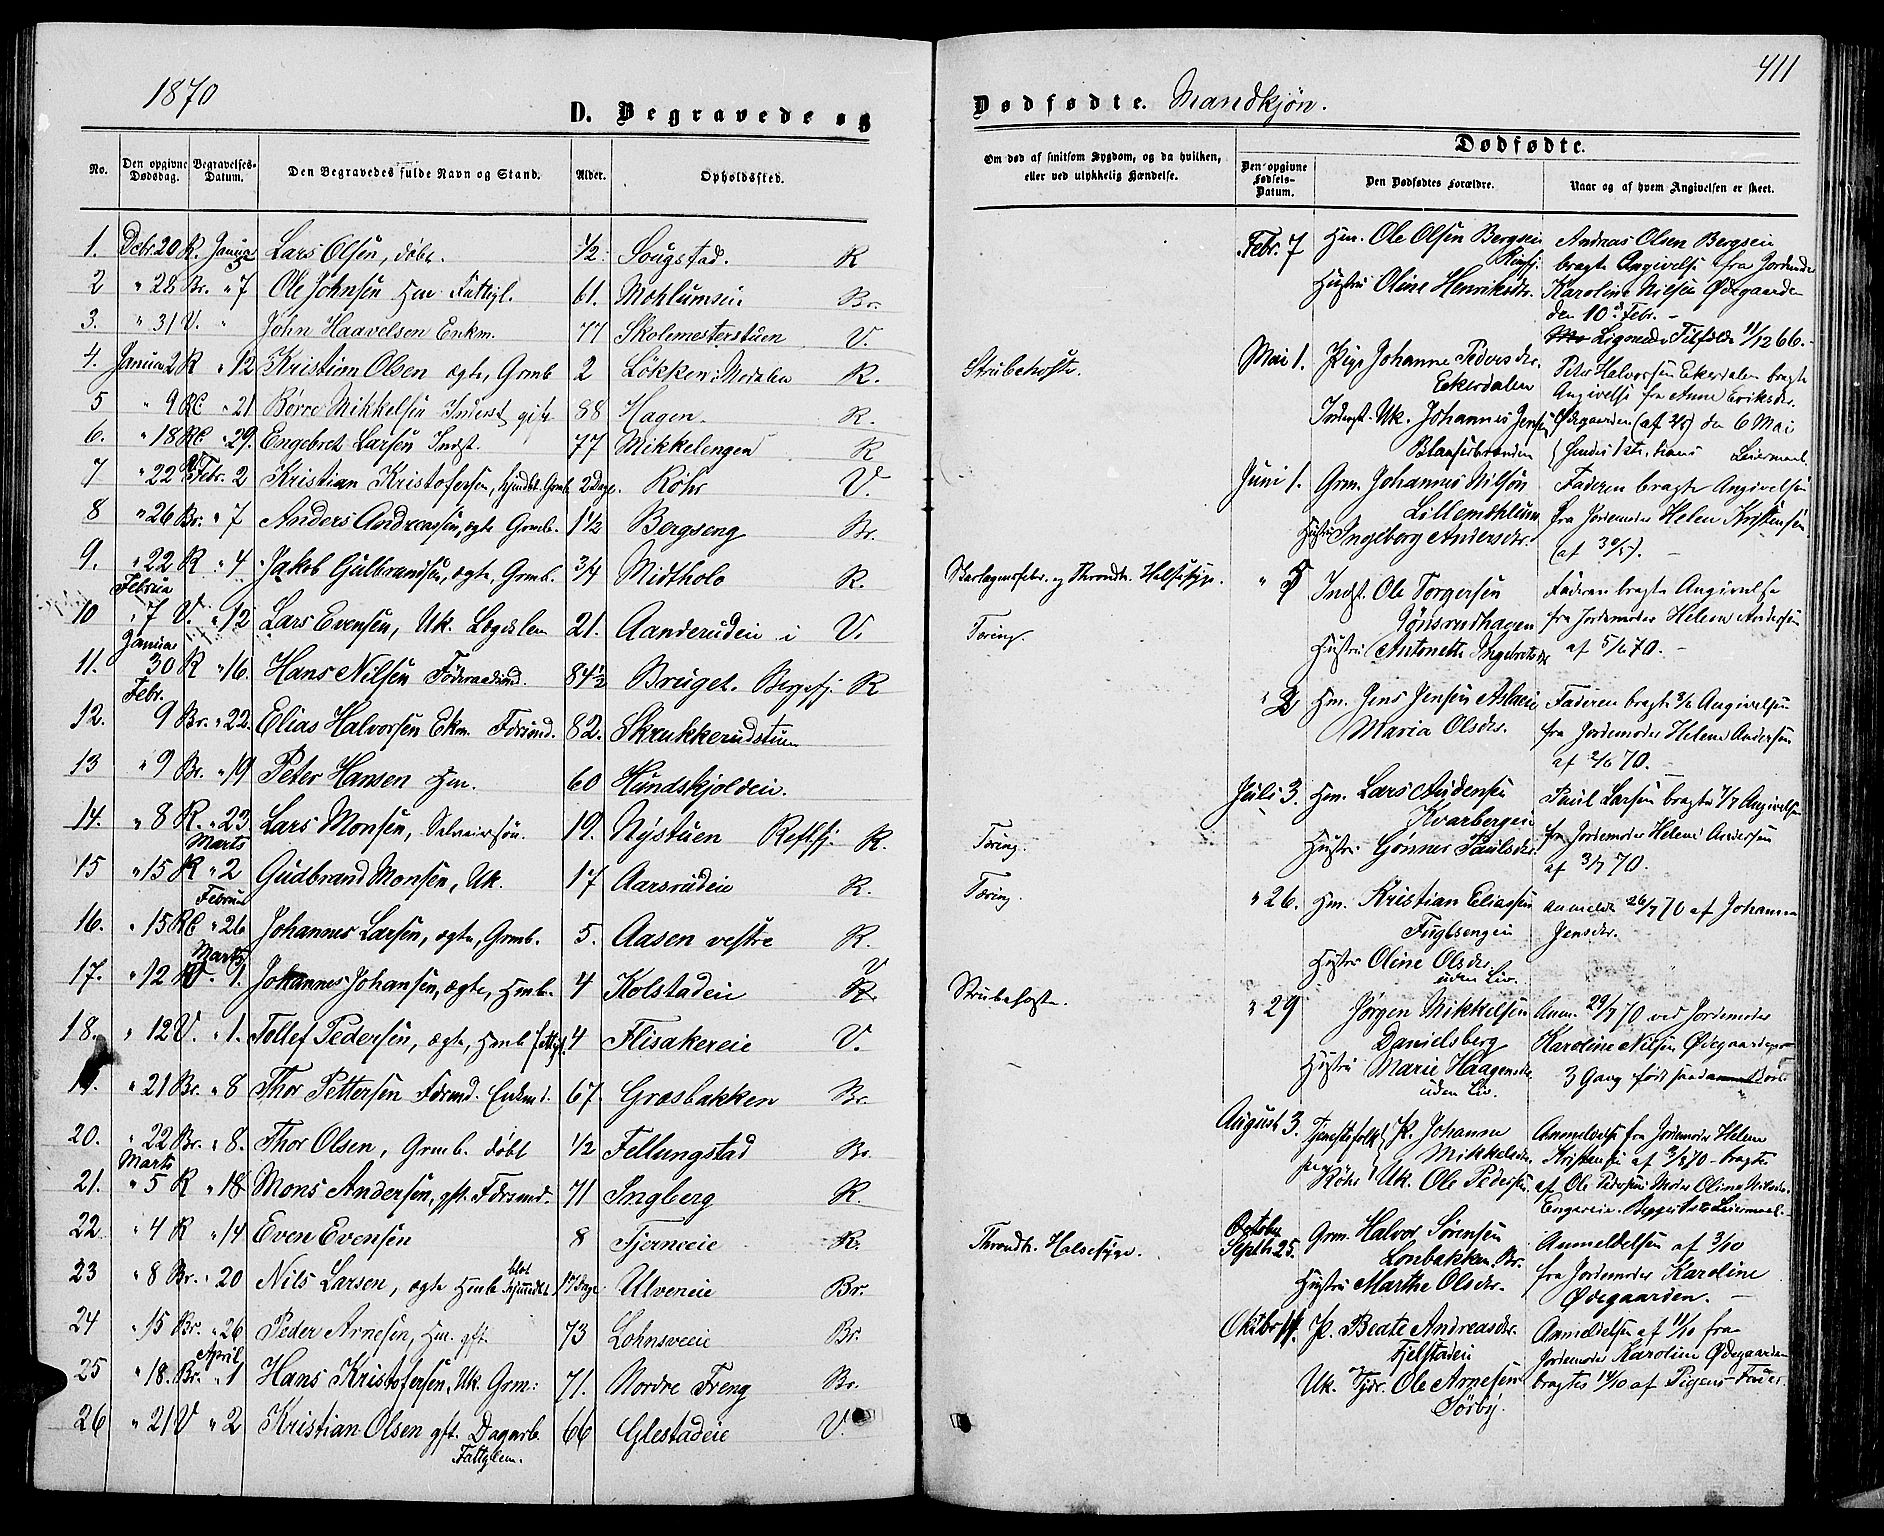 1870
D. Begravede og
No. Den opgivne Dødsdag. Begravelses-Datum. Den Begravedes fulde Navn og Stand. Alder. Opholdssted.
1. Decbr. 20 R. Januar 5 Lars Olsen, døbt. 1/2 Sougstad. R
2 " 28 Br. " 7 Ole Johnsen Hm Fattigl. 61. Mohlumseie Br.
3. " 31 V. " John Haavelsen Enkm. 77 Skolmesterstuen V.
4. Januar 2 R " 12 Kristian Olsen ægte, Grmb. 2 Løkken i Modalen R.
5 " 9 RC " 21 Børre Mikkelsen Inderst gift 88 Hagen R.
6. " 18 RC " 29. Engebret Larsen Indst. 77 Mikkelengen R
7 " 22 Febr. 2 Kristian Kristofersen, hjmdbt. Grmb. 2 Dage. Röhr V.
8 " 26 Br. " 7 Anders Andreassen, ægte Grmb. 1 1/2 Bergseng Br.
9. " 22 R " 4 Jakob Gulbrandsen, ægte, Grmb. 3/4 Midtholo R.
10 Februar 7 V. " 12 Lars Evensen, Uk. Lægdslem 21. Aanderudeie i V.
11. Januar 30 R " 16. Hans Nilsen Föderaadsmd. 84 1/2 Bruget. R
12. Febr. 9 Br. " 22. Elias Halvorsen Ekm. 82. Skrukkerudstuen
13 " 9 Br. " 19 Peter Hansen Hm. 60 Hundskjoldeie.
14. " 8 R. " 23 Lars Monsen, 19. Nystuen R.
15 " 15 R Marts 2 Gudbrand Monsen, Uk. 17 Aarsrudeie R.
16. " 15 RC Februar 26 Johannes Larsen, ægte, Grmb. 5. Aasen vestre R.
17. " 12 V Marts 1. Johannes Johansen, ægte, Hmb. 4 Kolstadeie V
18. " 12 V. " 1. Tollef Pedersen, ægte, Hmb fattigl. 4 Flisakereie V.
19. " 21 Br. " 8 Thor Pettersen Enkmd. 67. Græsbakken Br.
20. " 22 Br. " 8. Thor Olsen, Grmb. døbt 1/2 Fellungstad Br.
21. Marts 5 R " 18 Mons Andersen, gft. 71 Ingberg R.
22 " 4 R " 14 Even Evensen 8 Tjerneeie R.
23 " 8 Br. " 20 Nils Larsen, ægte Hmb. blot hjmmedbt. 17 Dage Ulveneie Br.
24 " 15 Br. " 26 Peder Arnesen, Hm. gft. 73 Lohnsveeie Br.
25 " 18. Br. April 1 Hans Kristofersen, Uk. Grm: 71. Nordre Freng Br.
26 " 21 V " 2 Kristian Olsen gft. Dagarb. Fattiglem. 66 Glestadeie V.
411
Dødfødte. Mandkjøn.
Om død af smitsom Sygdom, og da hvilken, eller ved ulykkelig Hændelse.
Dødfødte.
Den opgivne Fødsels-Datum. Den Dødfødtes Forældre. Naar og af hvem Angivelsen er skeet.
Strubehoste.
Skarlagensfebr. og Throndh. Halssyge.
Tæring.
Tæring.
Tæring.
Strubehoste.
Throndh. Halssyge.
Febr. 7 Hm. Ole Olsen Bergseie
Hustru Oline Henriksdr.
Andreas Olsen Bergseie
bragte Angivelse fra Jordemoder
Karoline Nilsen Ødegaarden
den 10de Febr. -
Lignende Tilfælde 11/12 66. -
Mai 1. Pige Johanne Pedersdr.
Ekerdalen
Uk. Johannes Jensen
Peter Halvorsen Ekerdalen bragte
Angivelse fra Anne Eriksdr.
Ødegaarden (af 2/5) den 6 Mai
Leiermaal.
Juni 1. Grm. Johannes Nilsen
Lillemohlum
Hustru Ingeborg Andersdr.
Faderen bragte Angivelse
fra Jordemoder Helene Kristensen
" 5 Indst. Ole Torgersen
Hustru Antonette Ingebretsdr
Faderen bragte Angivelse
fra Jordemoder Helene Andersen
af 5/6 70. -
" 2 Hm. Jens Jensen
Maria Olsdr.
Faderen bragte Angivelsen
fra Jordemoder Helene Andersen
af 2/6 70. -
Juli 3. Hm. Lars Audensen
Kvarbergeie
Hustru Gønner Paulsdr.
Paul Larsen bragte 4/7 Angivelsen
fra Jordemoder Helene Andersen
af 3/7 70.
" 26. Hm. Kristian Eliassen
Fuglsengeie
Hustru Oline Olsdr.
uden Liv.
Anmeldt 26/7 70 af Johanne
Jensdr.
" 29 Jørgen Mikkelsen
Danielsberg
Hustru Marie Haagensdr
uden Liv.
Anm. 29/7 70 ved Jordemoder
Karoline Nilsen Ødegaarden
3 Gang født
August 3. Tjenestefolk paa Röhr P. Johanne
Mikkelsdr.
Uk. Ole Pedersen
Anmeldelse fra Jordemoder Helene
Kristensen af 3/8 70 - bragtes
af Ole Pedersens Moder Oline
Leiermaal. -
Septbr 25. Grm. Halvor Sørensen
Lonbakken Br.
Hustru Marthe Olsdr.
Anmeldelsen af 3/10
fra Jordemoder Karoline
Ødegaarden. -
Oktbr 11. P. Beate Andreasdr.
Fjelstadeie
Uk. Ole Arnesen
Sörby.
Anmeldelsen af 11/10 fra
Jordemoder Karoline Ødegaarden
bragtes af Pigens Fader.